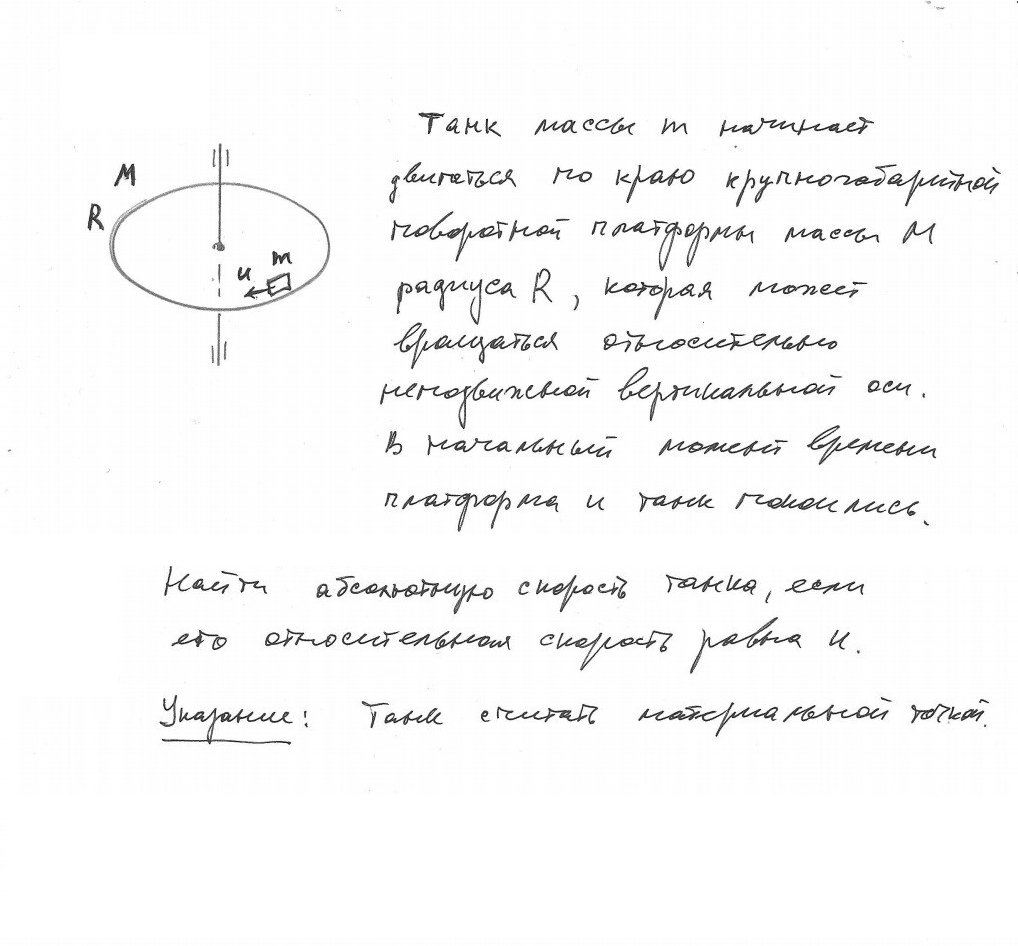 M
R
u
m
Танк массы m начинает
двигаться по краю крупногабаритной
поворотной платформы массы M
радиуса R, которая может
вращаться относительно
неподвижной вертикальной оси.
В начальный момент времени
платформа и танк покоились.
Найти абсолютную скорость танка, если
его относительная скорость равна u.
Указание: Танк считать материальной точкой.